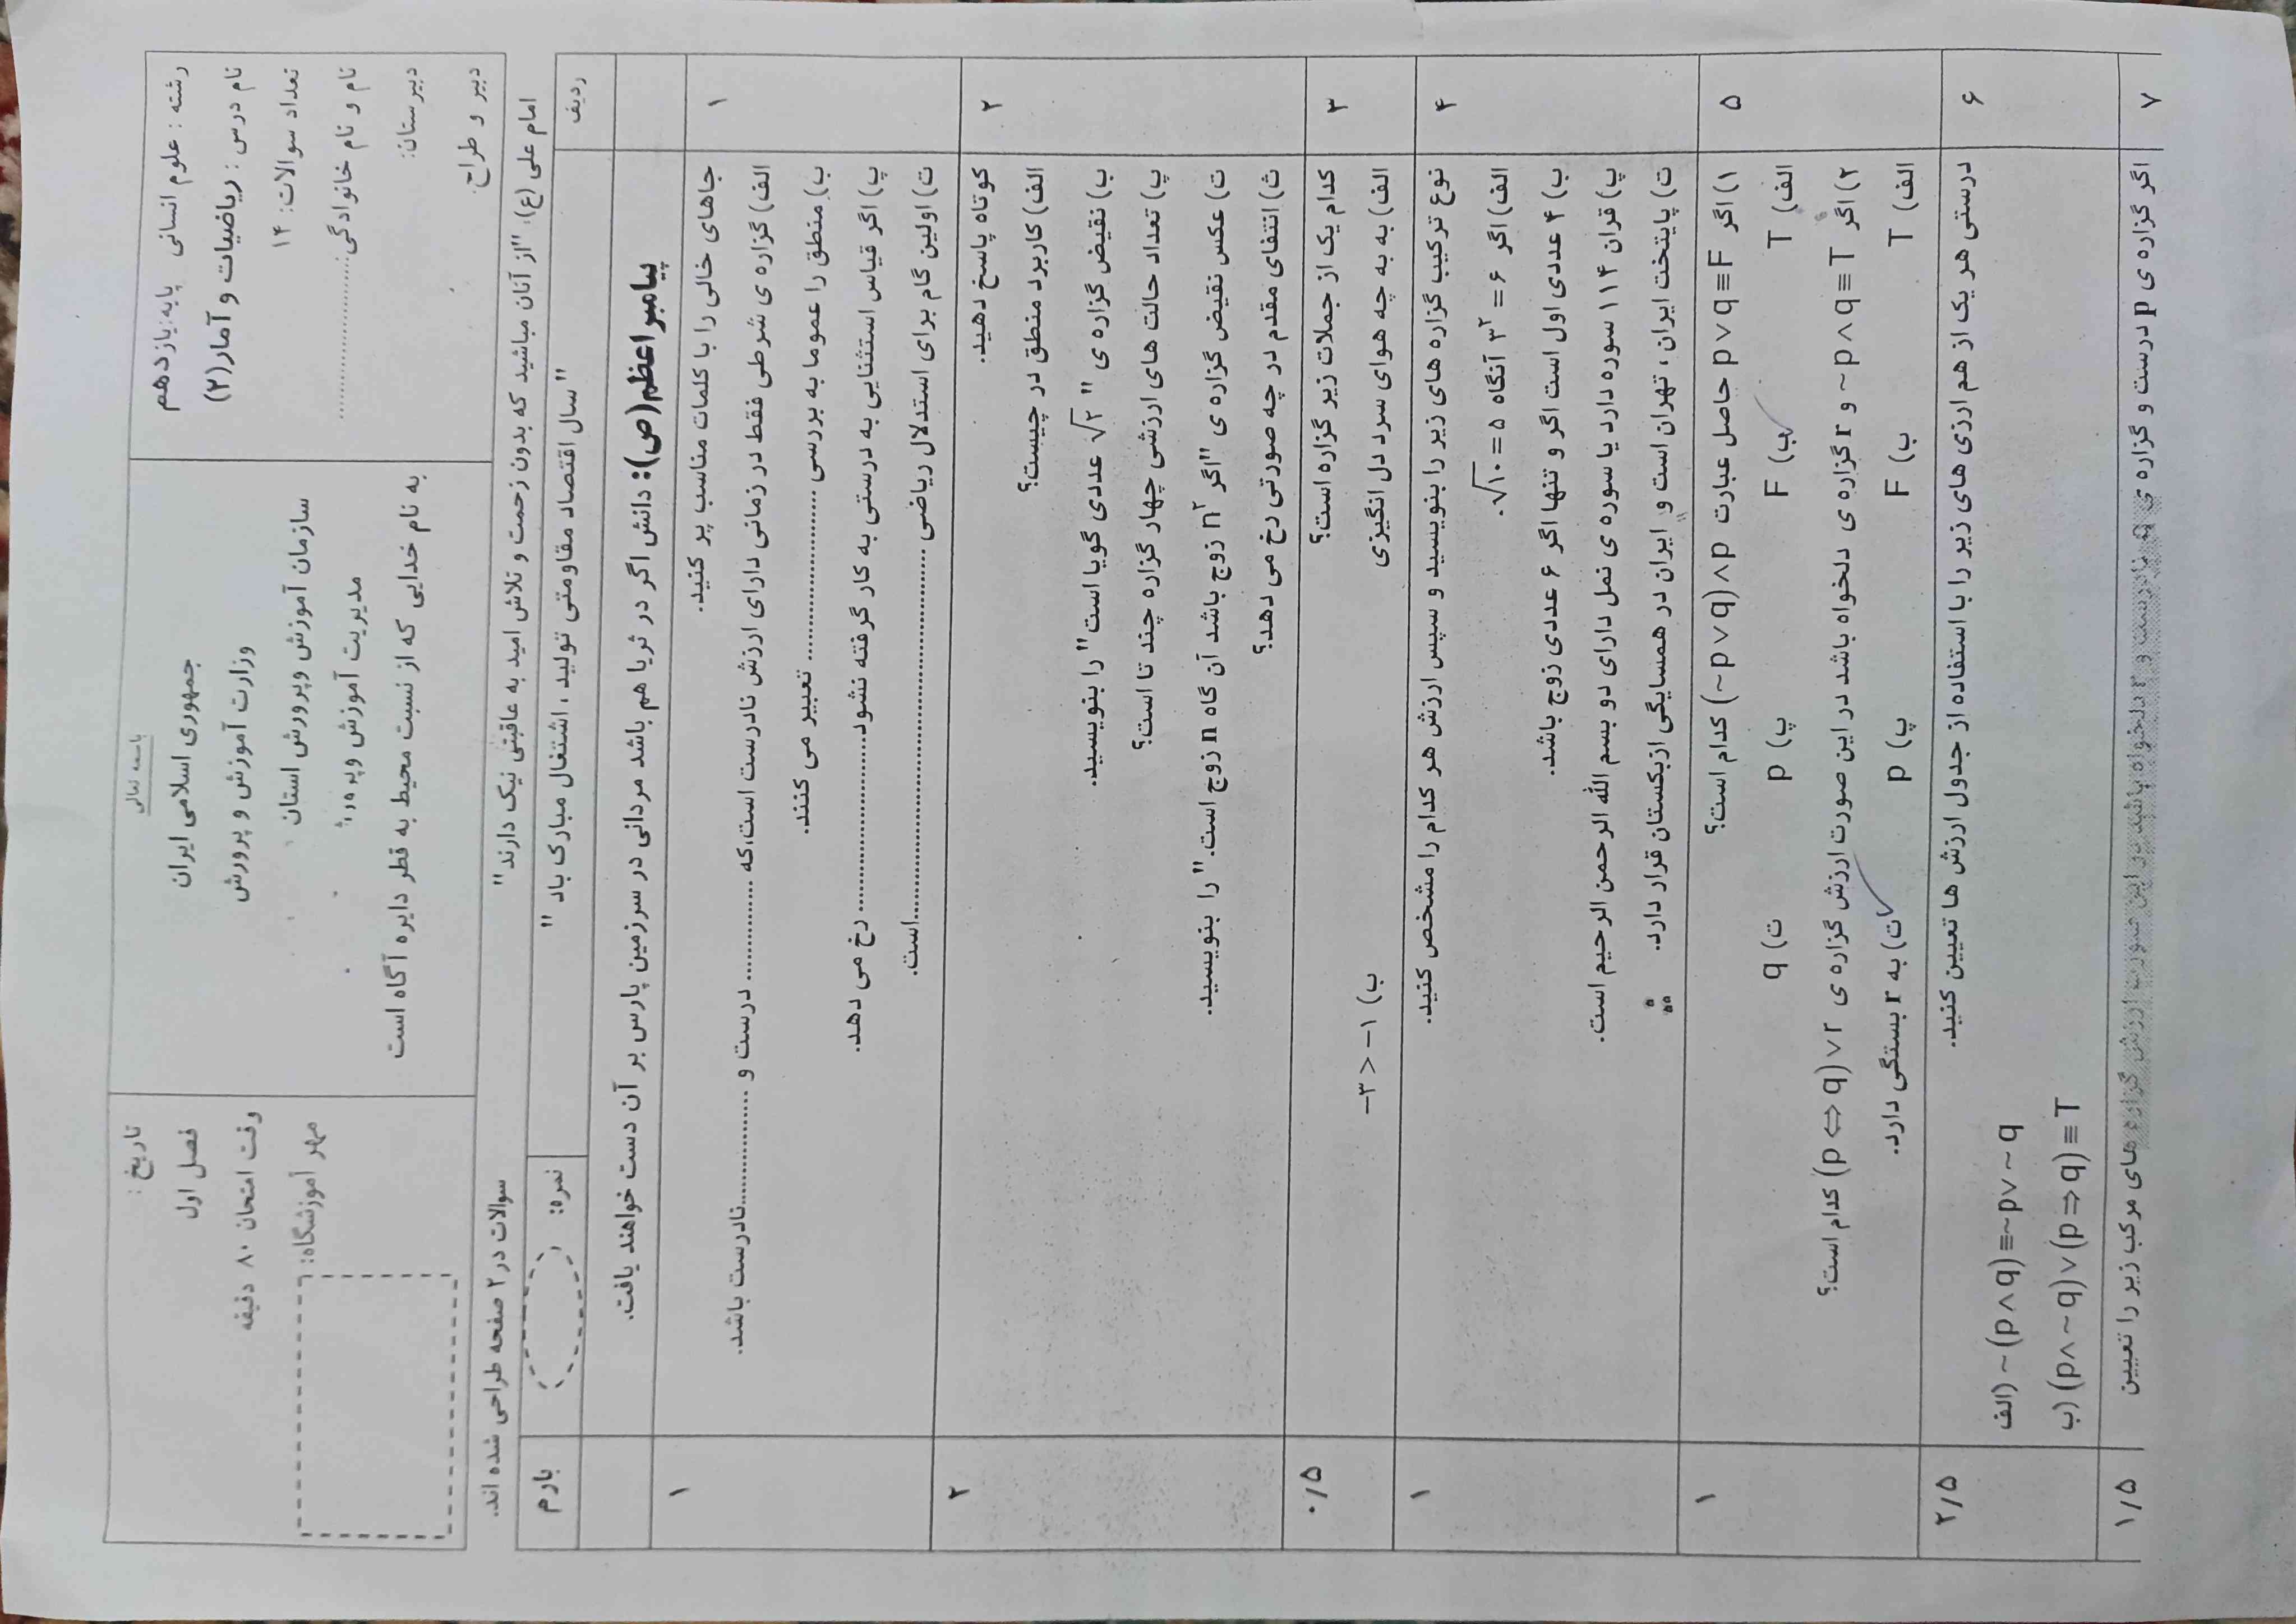 باسمه تعالی
رشته : علوم انسانی پایه:یازدهم
نام درس : ریاضیات و آمار(۲)
تعداد سوالات: ۱۴
نام و نام خانوادگی....................
دبیرستان:
دبیر و طراح:
جمهوری اسلامی ایران
وزارت آموزش و پرورش
سازمان آموزش وپرورش استان
مدیریت آموزش
به نام خدایی که از نسبت محیط به قطر دایره آگاه است
تاریخ :
فصل اول
وقت امتحان ۸۰ دقیقه
مهر آموزشگاه:
امام علی (ع): "از آنان مباشید که بدون زحمت و تلاش امید به عاقبتی نیک دارند" سوالات در ۲ صفحه طراحی شده اند.
ردیف "سال اقتصاد مقاومتی تولید ، اشتغال مبارک باد " نمره: بارم
پیامبر اعظم(ص): دانش اگر در ثریا هم باشد مردانی در سرزمین پارس بر آن دست خواهند یافت.
۱ جاهای خالی را با کلمات مناسب پر کنید. ۱
الف) گزاره ی شرطی فقط در زمانی دارای ارزش نادرست است،که ............ درست و ............نادرست باشد.
ب) منطق را عموما به بررسی .................... تعبیر می کنند.
پ) اگر قیاس استثنایی به درستی به کار گرفته نشود.................... رخ می دهد.
ت) اولین گام برای استدلال ریاضی ........................................است.
۲ کوتاه پاسخ دهید. ۲
الف) کاربرد منطق در چیست؟
ب) نقیض گزاره ی " √۲ عددی گویا است" را بنویسید.
پ) تعداد حالت های ارزشی چهار گزاره چند تا است؟
ت) عکس نقیض گزاره ی "اگر n² زوج باشد آن گاه n زوج است." را بنویسید.
ث) انتفای مقدم در چه صورتی رخ می دهد؟
۳ کدام یک از جملات زیر گزاره است؟ ۰/۵
الف) به به چه هوای سرد دل انگیزی ب) −۳ > −۱
۴ نوع ترکیب گزاره های زیر را بنویسید و سپس ارزش هر کدام را مشخص کنید. ۱
الف) اگر ۳² = ۶ آنگاه √۱۰ = ۵.
ب) ۴ عددی اول است اگر و تنها اگر ۶ عددی زوج باشد.
پ) قران ۱۱۴ سوره دارد یا سوره ی نمل دارای دو بسم الله الرحمن الرحیم است.
ت) پایتخت ایران ، تهران است و ایران در همسایگی ازبکستان قرار دارد.
۵ ۱) اگر p ∨ q ≡ F حاصل عبارت (~p ∨ q) ∧ p کدام است؟ ۱
الف) T ب) F پ) p ت) q
۲) اگر ~p ∧ q ≡ T و r گزاره ی دلخواه باشد در این صورت ارزش گزاره ی (p ⇔ q) ∨ r کدام است؟
الف) T ب) F پ) p ت) به r بستگی دارد.
۶ درستی هر یک از هم ارزی های زیر را با استفاده از جدول ارزش ها تعیین کنید. ۲/۵
الف) ~(p ∧ q) ≡ ~p ∨ ~q
ب) (p ∧ ~q) ∨ (p ⇒ q) ≡ T
۷ اگر گزاره ی p درست و گزاره ی q نادرست و r دلخواه باشد در این صورت ارزش گزاره های مرکب زیر را تعیین ۱/۵